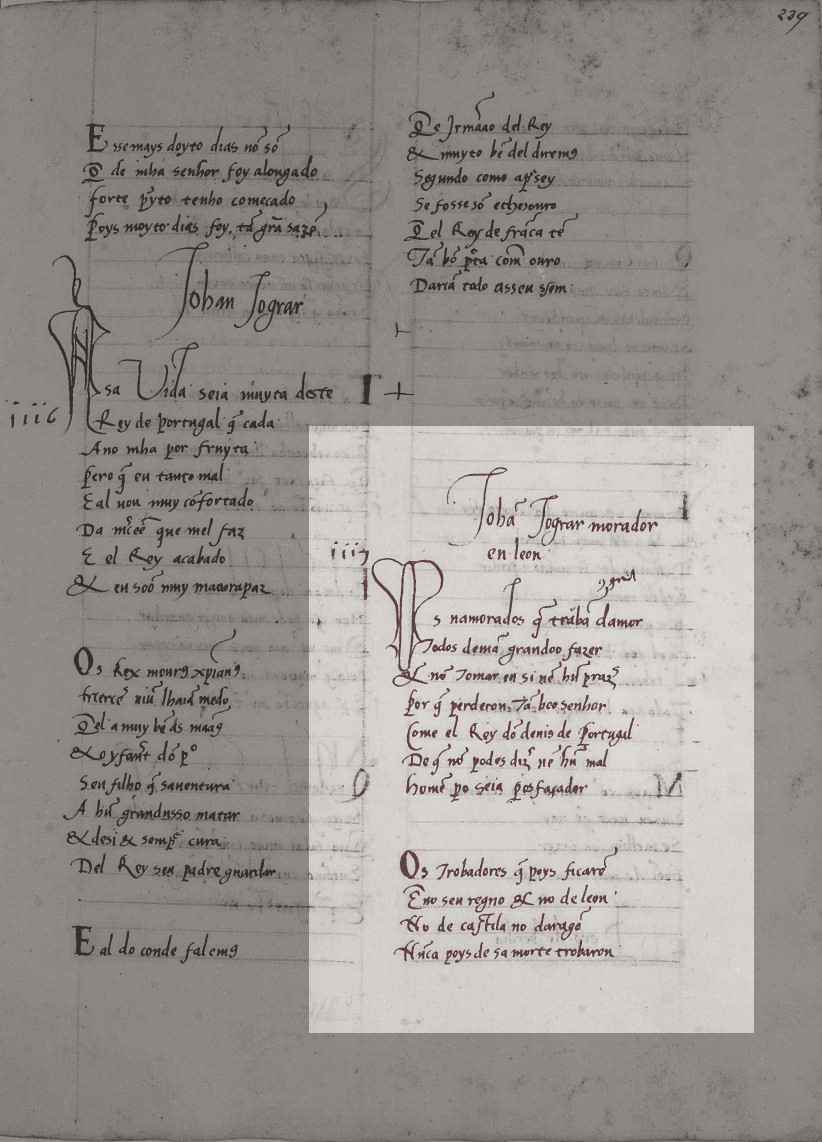 229
E ssemays doyto dias nõ sõ
Q de mha senhor foy alongado
forte p̃yto tenho começado
Poys moyto dias foy, tã grã sazõ
Johan Jograr
Asa Vida seia muyta deste
iiij6
Rey de portugal q̃ cada
Ano mha por fruyta
Pero q̃ eu tanto mal
E al uou muy cõfortado
Da m̃cee que mel faz
E el Rey acabado
& eu soõ muy
Os Rex mour9 xp̃ian9
Del a muy bẽ as maã9
& o yfant dõ pº
Seu filho q̃ sauentura
A hũ grandusso matar
& desi & semp̃ cura
Del Rey seu padre guardar
E al do conde falem9
De Jrmaão del Rey
& muyto bẽ del direm9
Segundo como ap̃sey
Se fosse sõ e thesouro
Q el Rey de frãca tẽ
Tã bõ p̃ta com ouro
Daria todo asseu ssem
Johã Jograr morador
en leon
iiij
Os namorados q̃ trobã damor
Todos deuiã grandoo fazer
& nõ Tomar en si nẽ hũ praz
Por q̃ perderon Tã boo senhor
Come el Rey dõ denis de Portugal
De q̃ nõ podes diz nẽ hũ mal
homẽ po seia posfaçador
Os Trobadores q̃ poys ficarõ
Eno seu regno & no de leon
No de castela no daragõ
Nũca poys de sa morte trobaron